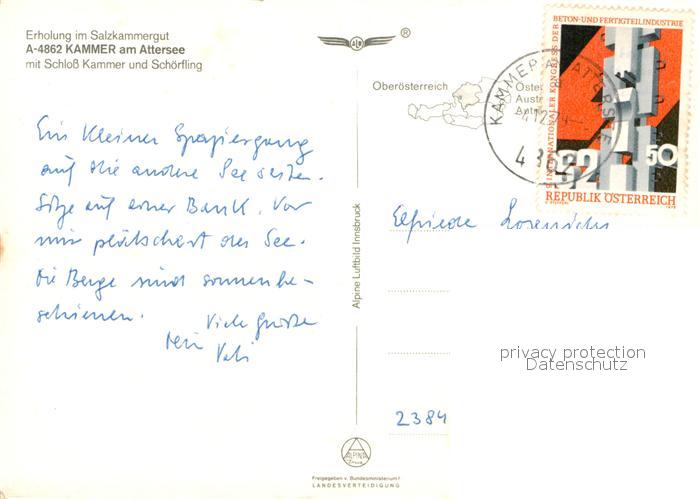 Erholung im Salzkammergut
A-4862 KAMMER am Attersee
mit Schloß Kammer und Schörfling
Ein kleiner Spaziergang
auf die andere Seeseite.
Sitze auf einer Bank. Vor
mir plätschert der See.
Die Berge sind sonnenbe-
schienen.
Viele Grüße
Dein
Alpine Luftbild Innsbruck
ALPINE
Freigegeben v. Bundesministerium f.
LANDESVERTEIDIGUNG
®
Oberösterreich
KAMMER A. ATTERSEE
4862
INTERNATIONALER KONGRESS DER
BETON- UND FERTIGTEILINDUSTRIE
S2
50
REPUBLIK ÖSTERREICH
Elfriede
privacy protection
Datenschutz
2384